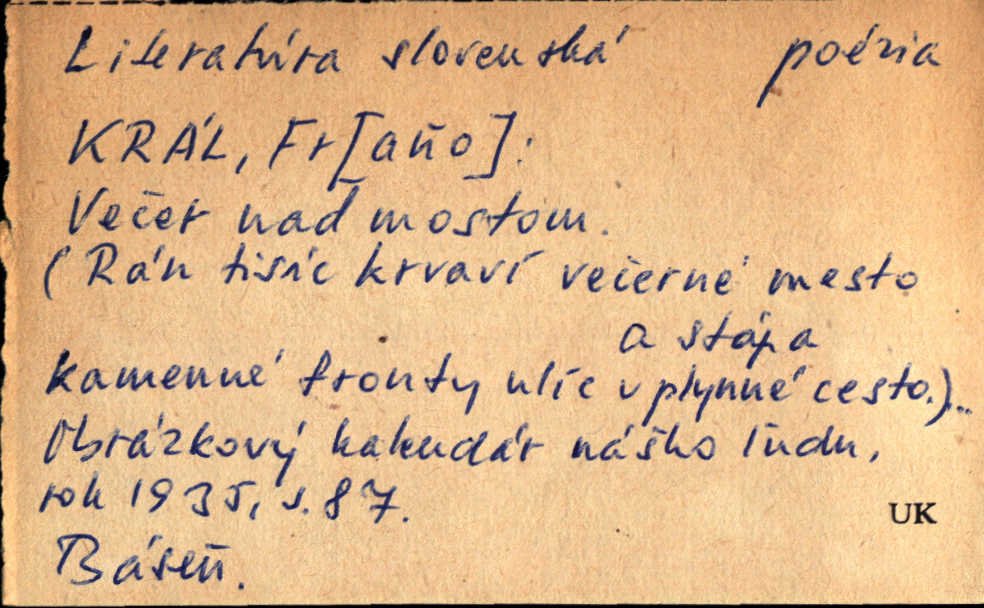 Literatúra slovenská poézia
KRÁĽ, Fr[aňo]:
Večer nad mostom.
(Rán tisíc krvaví večerné mesto
a stápa
kamenné fronty ulíc v plynné cesto.)...
Obrázkový kalendár nášho ľudu,
rok 1935, s. 87.
UK
Báseň.